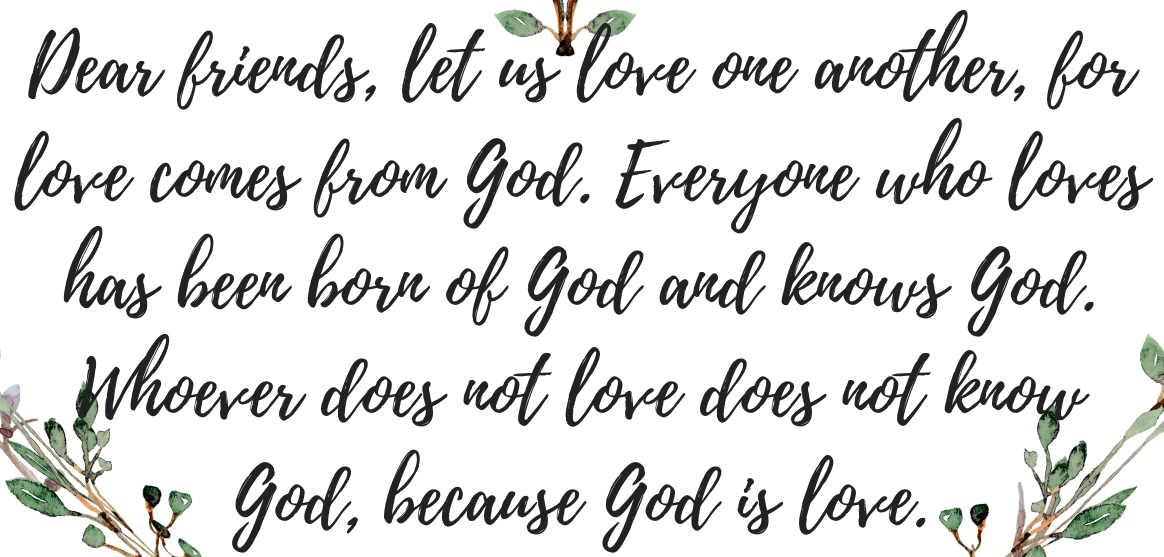 Dear friends, let us love one another, for
love comes from God. Everyone who loves
has been born of God and knows God.
Whoever does not love does not know
God, because God is love.